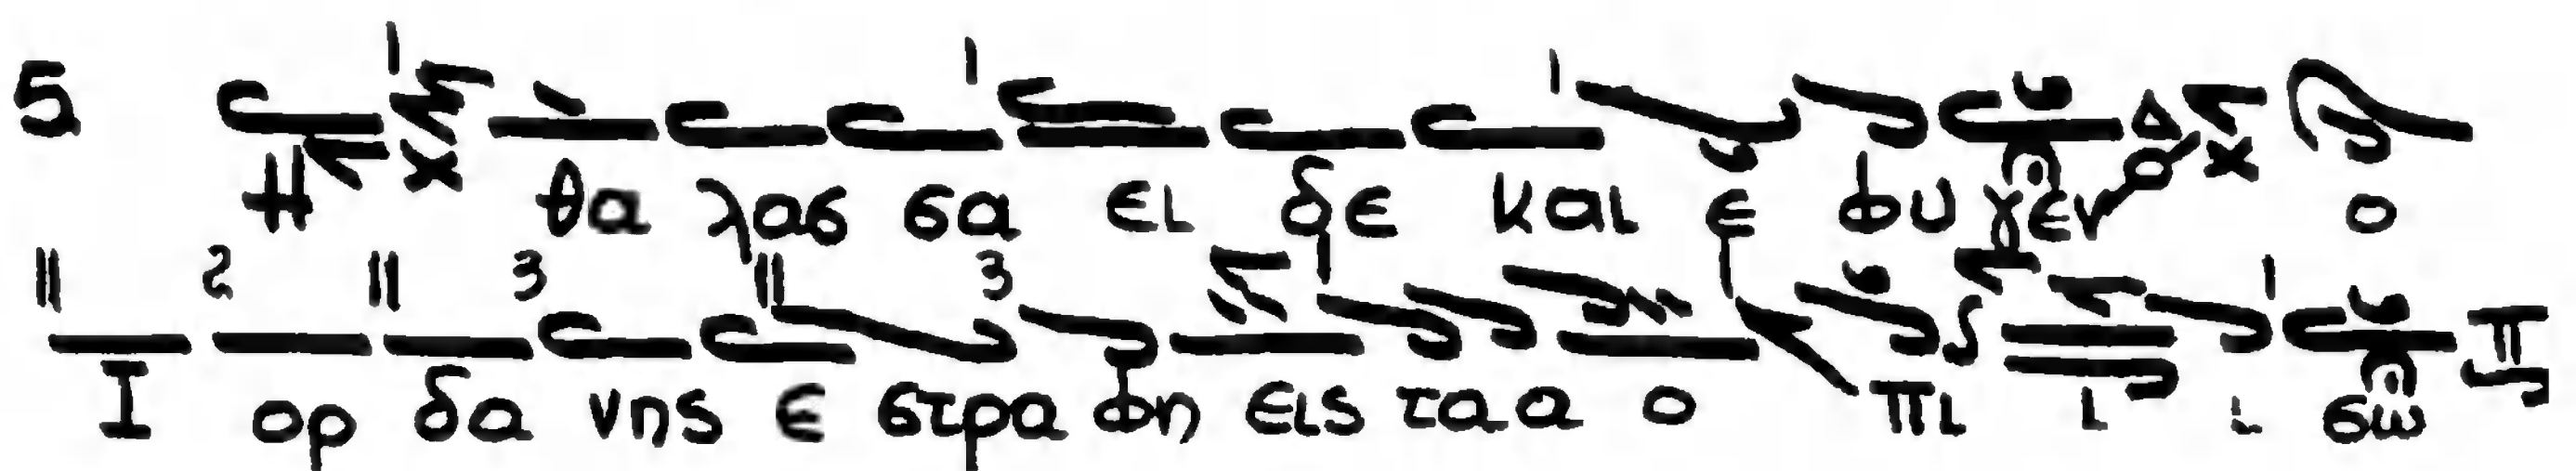 5 Η θα λασ σα ει δε και ε φυ γεν Δ ο
Ι ορ δα νης ε στρα φη εις τα α ο πι ι ι σω Π